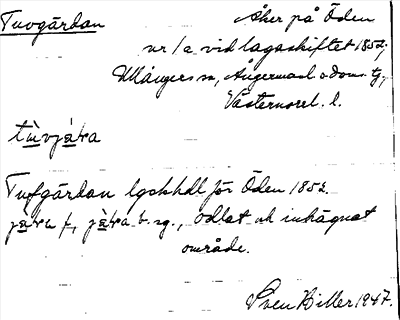 Tuvgårdan Åker på Öden
nr 1 a vid lagaskiftet 1852,
Ullångers sn, Ångermanl. s doms. tg,
Västernorrl. l.
Tufgårdan lgskhdl för Öden 1852.
f., sg., odlat och inhägnat
område.
Sven Hiller 1947.